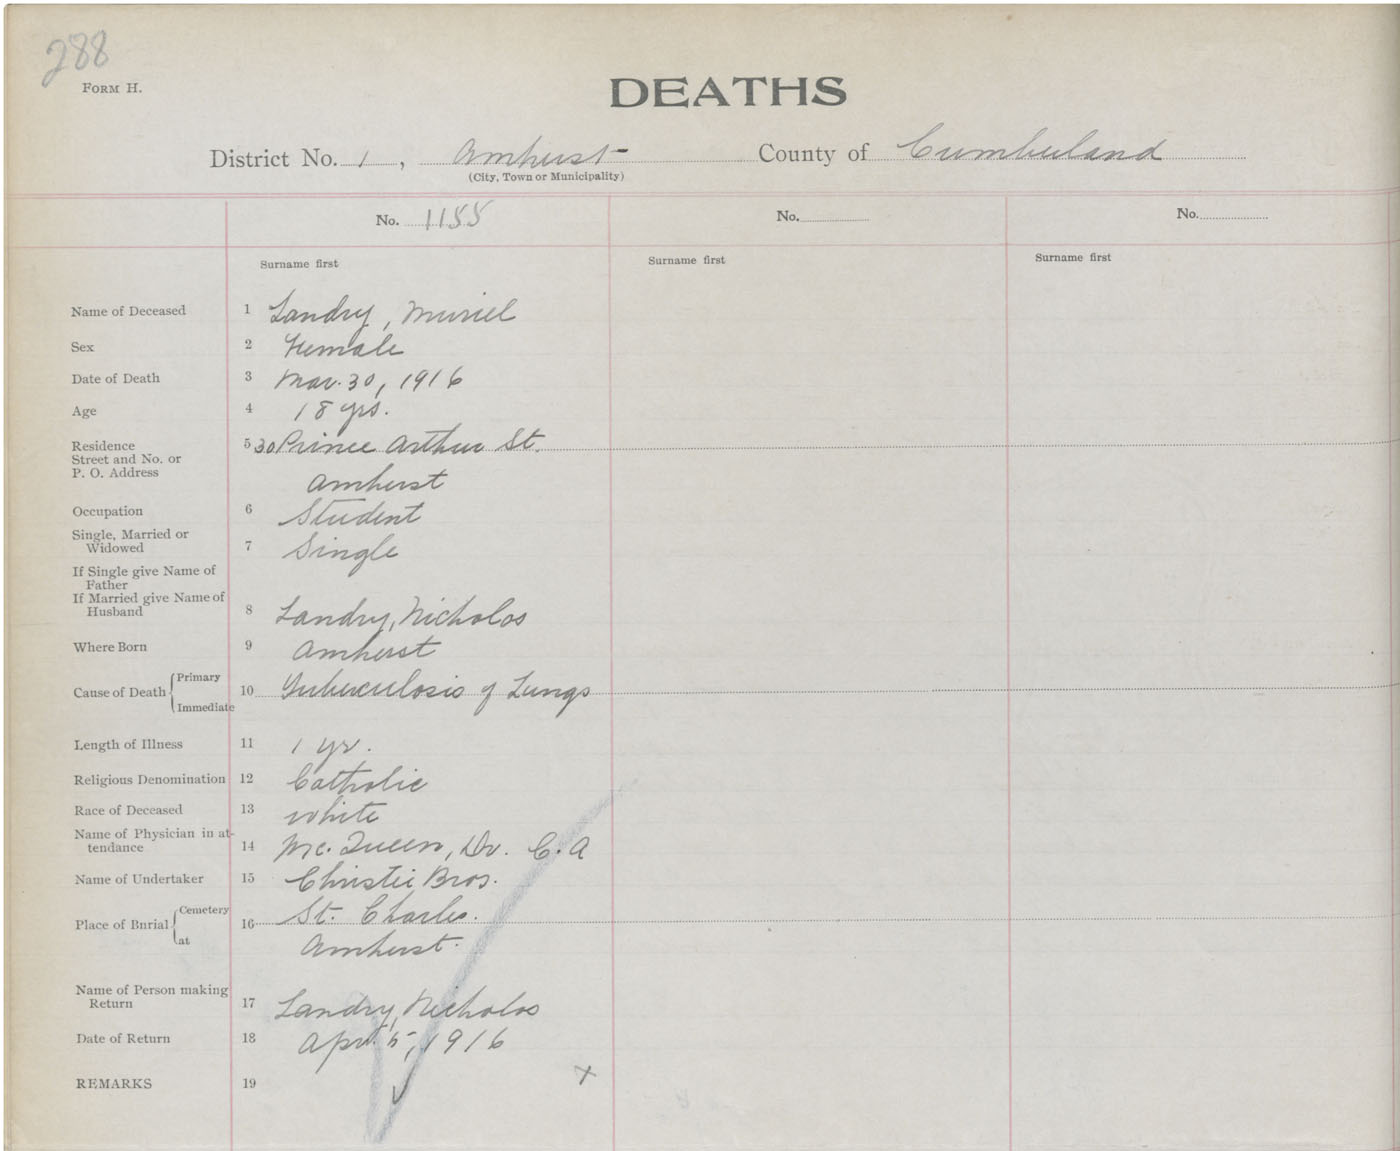 288
FORM H.
DEATHS
District No. 1, Amherst County of Cumberland
(City, Town or Municipality)
No. 1155 No. No.
Surname first Surname first Surname first
Name of Deceased 1 Landry, Muriel
Sex 2 Female
Date of Death 3 Mar. 30, 1916
Age 4 18 yrs.
Residence 5 30 Prince Arthur St.
Street and No. or
P. O. Address Amherst
Occupation 6 Student
Single, Married or
Widowed 7 Single
If Single give Name of
Father
If Married give Name of
Husband 8 Landry, Nicholos
Where Born 9 Amherst
Cause of Death { Primary
10 Tuberculosis of Lungs
Immediate
Length of Illness 11 1 yr.
Religious Denomination 12 Catholic
Race of Deceased 13 White
Name of Physician in at-
tendance 14 Mc. Queen, Dr. C. A
Name of Undertaker 15 Christie Bros.
Place of Burial { Cemetery
16 St. Charles.
at Amherst.
Name of Person making
Return 17 Landry, Nicholos
Date of Return 18 Apr. 5, 1916
REMARKS 19 x